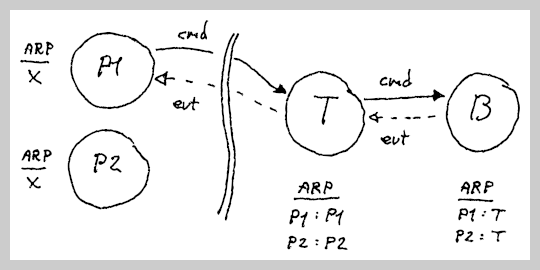 ARP
X
P1
cmd
evt
ARP
X
P2
T
cmd
evt
B
ARP
P1 : P1
P2 : P2
ARP
P1 : T
P2 : T